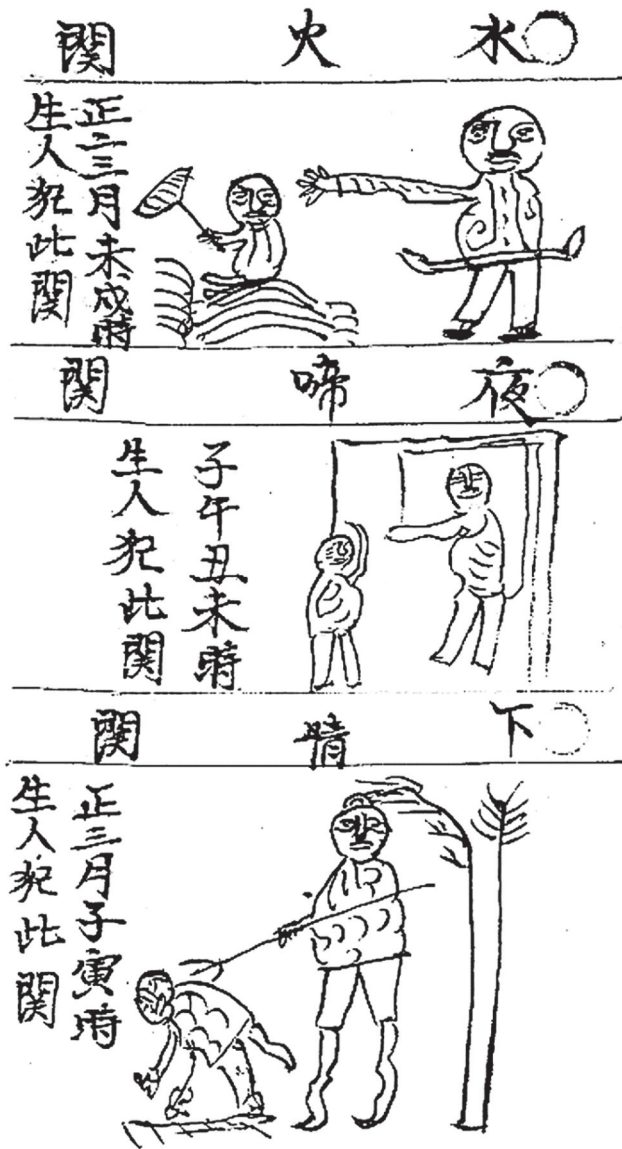 水火関
正二三月未戍時
生人犯此関
夜啼関
子午丑未時
生人犯比関
下情関
正三月子寅時
生人犯此関